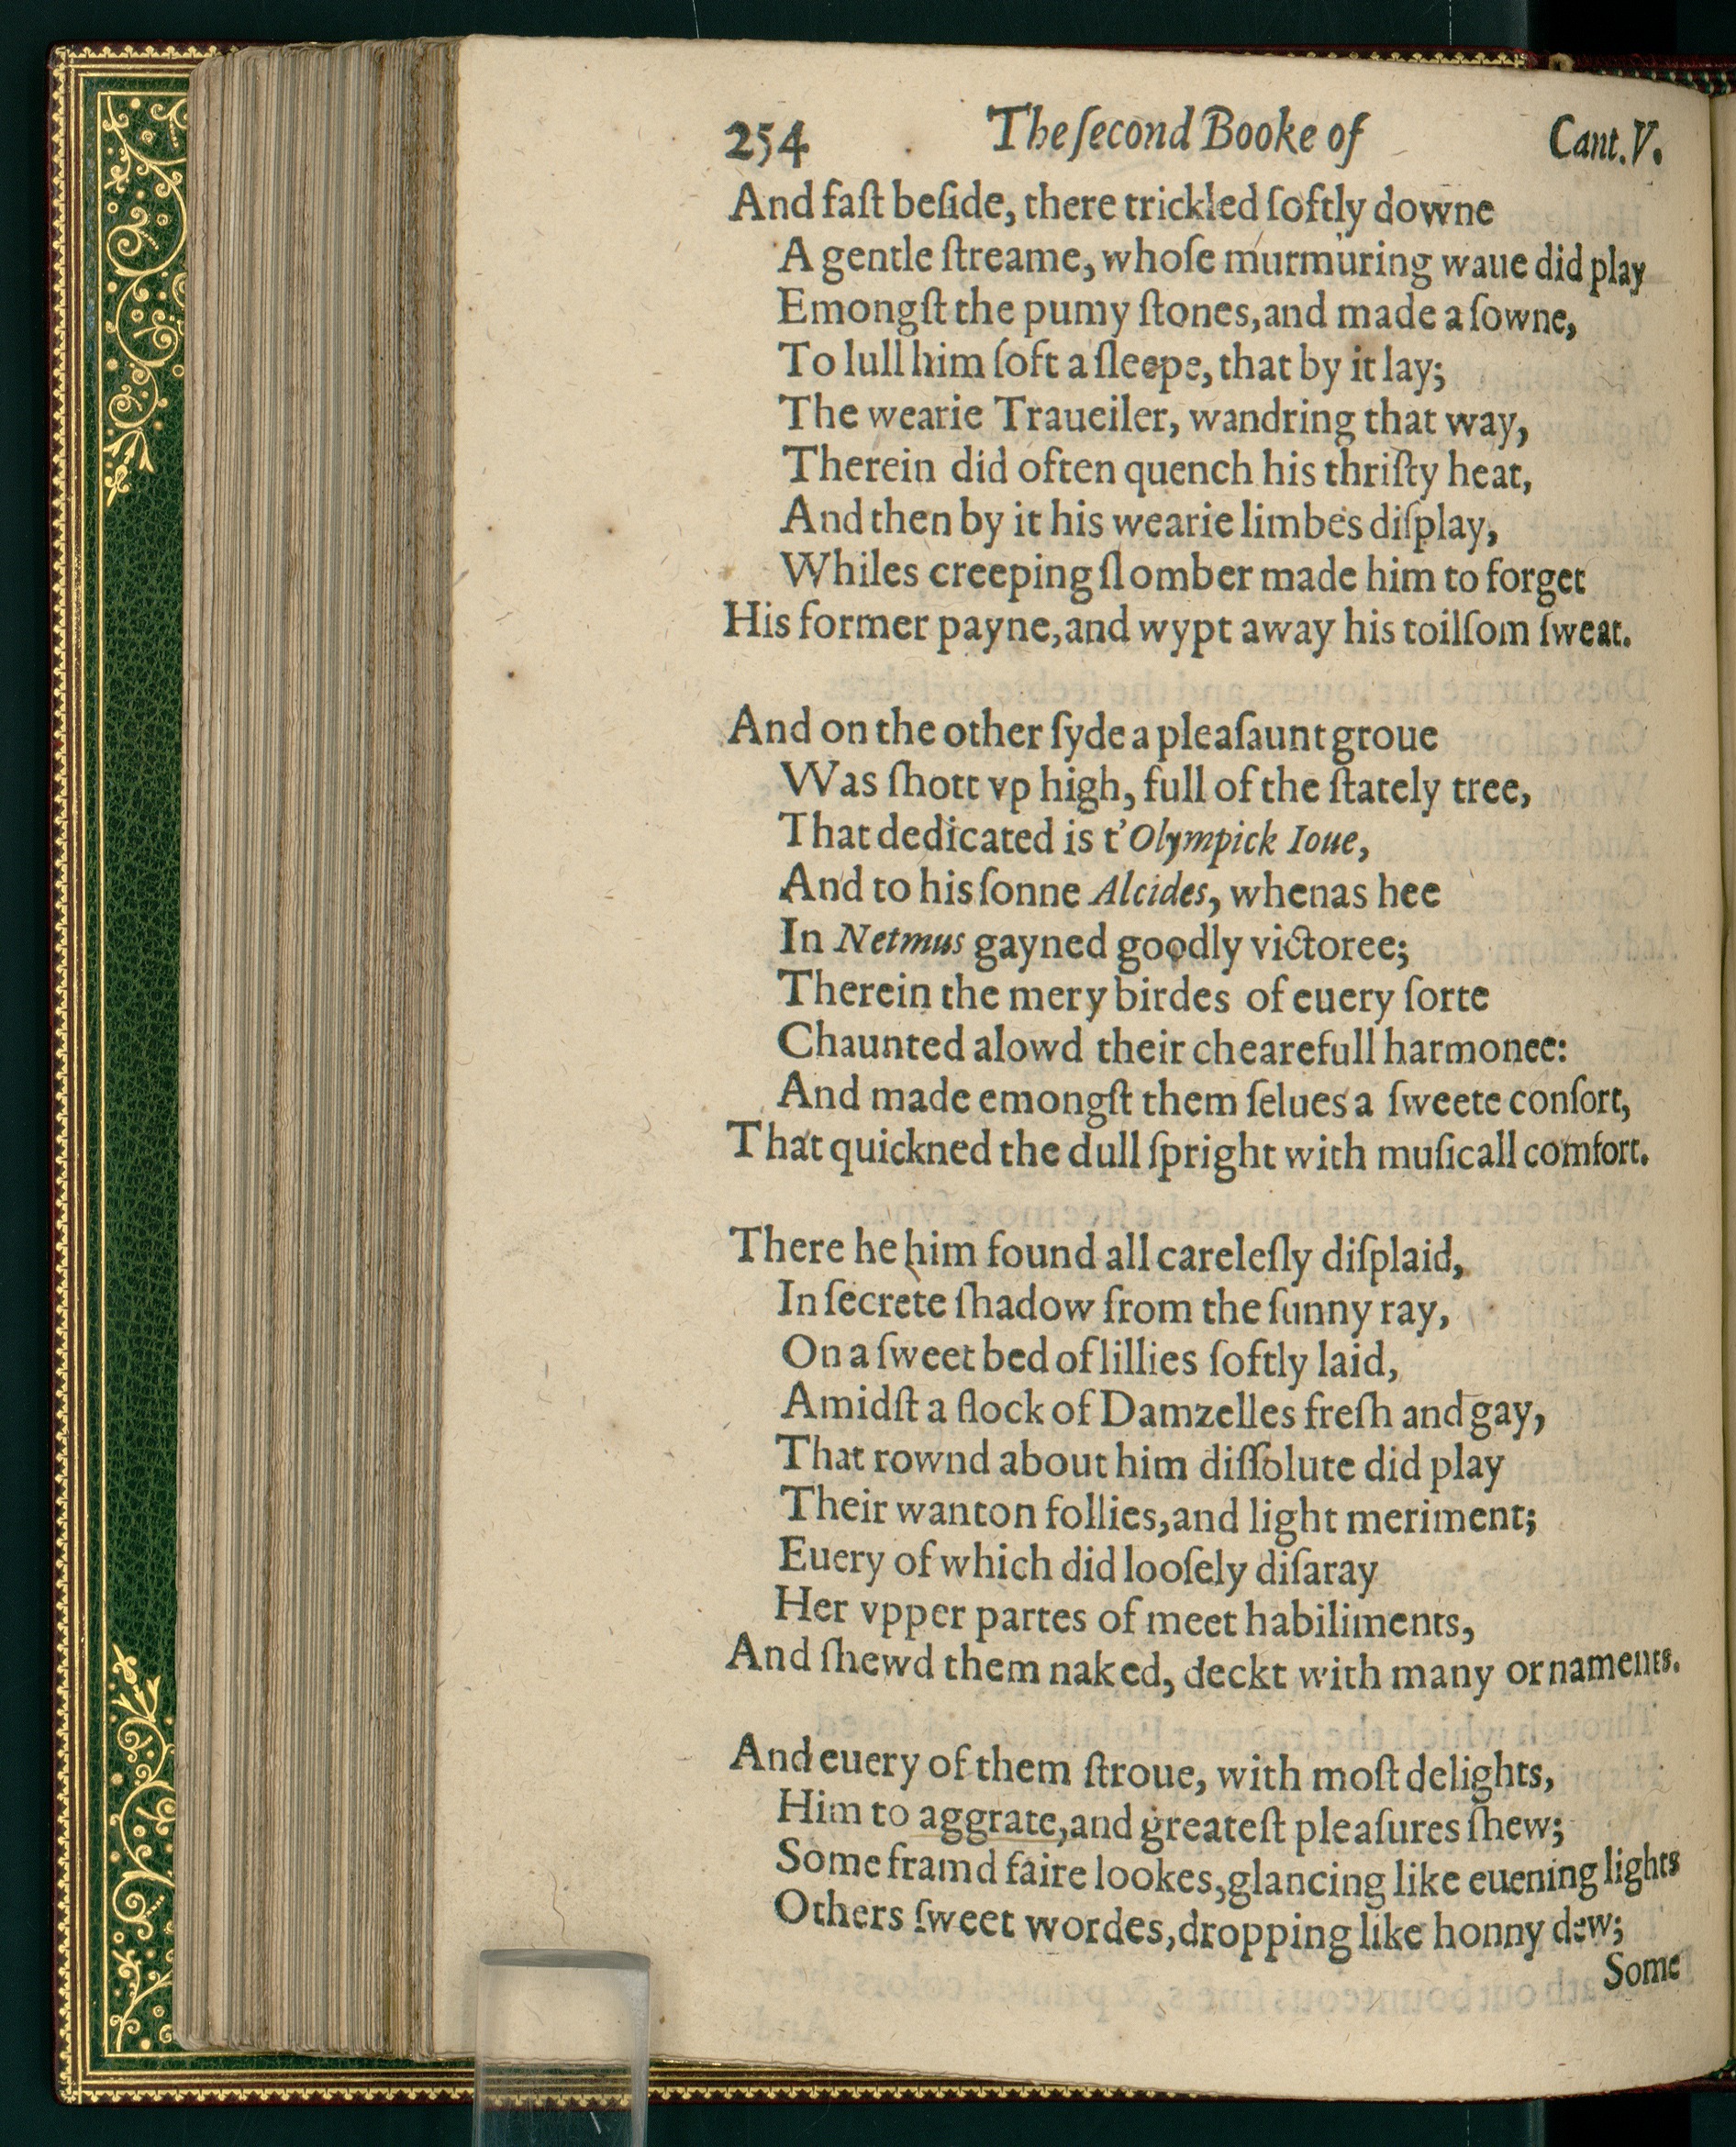 254 The ſecond Booke of Cant. V.
And faſt beſide, there trickled ſoftly downe
A gentle ſtreame, whoſe murmuring waue did play
Emongſt the pumy ſtones, and made a ſowne,
To lull him ſoft a ſleepe, that by it lay;
The wearie Traueiler, wandring that way,
Therein did often quench his thriſty heat,
And then by it his wearie limbes diſplay,
Whiles creeping ſlomber made him to forget
His former payne, and wypt away his toilſom ſweat.
And on the other ſyde a pleaſaunt groue
Was ſhott vp high, full of the ſtately tree,
That dedicated is t'Olympick Ioue,
And to his ſonne Alcides, whenas hee
In Netmus gayned goodly victoree;
Therein the mery birdes of euery ſorte
Chaunted alowd their chearefull harmonee:
And made emongſt them ſelues a ſweete conſort,
That quickned the dull ſpright with muſicall comfort.
There he him found all careleſly diſplaid,
In ſecrete ſhadow from the ſunny ray,
On a ſweet bed of lillies ſoftly laid,
Amidſt a flock of Damzelles freſh and gay,
That rownd about him diſſolute did play
Their wanton follies, and light meriment;
Euery of which did looſely diſaray
Her vpper partes of meet habiliments,
And ſhewd them naked, deckt with many ornaments.
And euery of them ſtroue, with moſt delights,
Him to aggrate, and greateſt pleaſures ſhew;
Some framd faire lookes, glancing like euening lights
Others ſweet wordes, dropping like honny dew;
Some